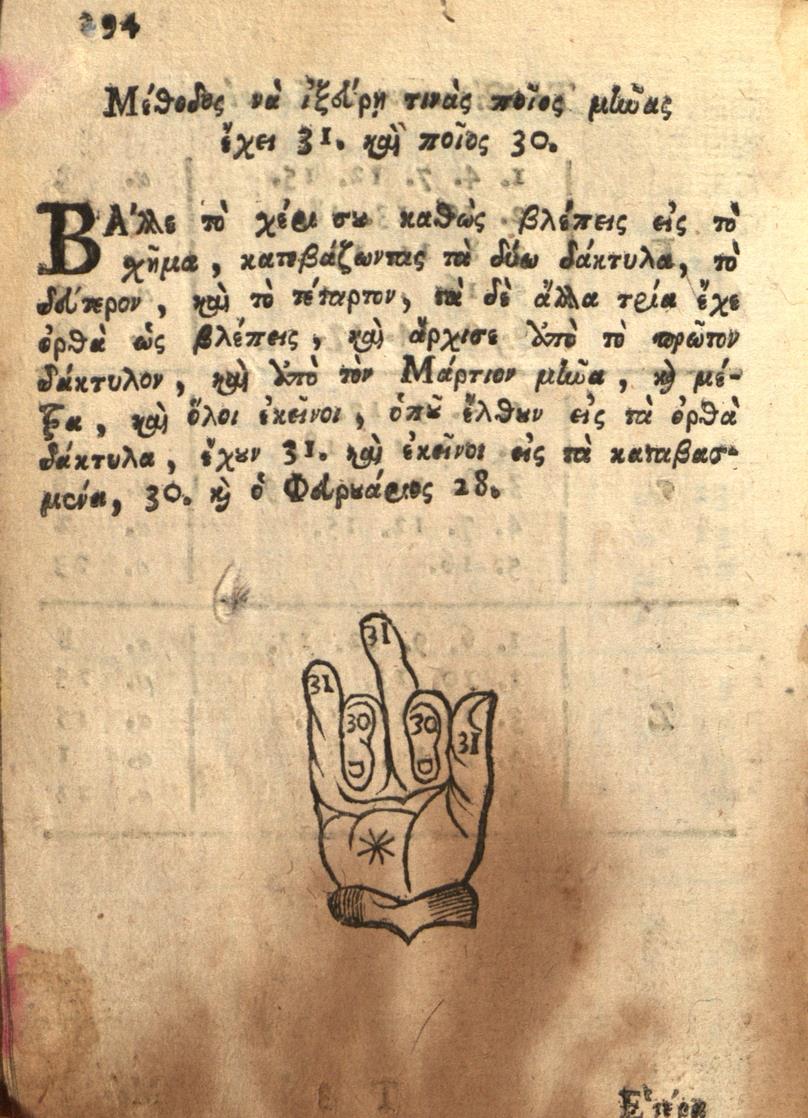 294
Μέθοδος νὰ ἰξεύρῃ τινὰς ποῖος μῆνας
ἔχει 31. καὶ ποῖος 30.
ΒΑ'λλε τὸ χέρι σου καθὼς βλέπεις εἰς τὸ
χῆμα, κατεβάζωντας τὰ δύω δάκτυλα, τὸ
δεύτερον, καὶ τὸ τέταρτον, τὰ δὲ ἄλλα τρία ἔχε
ὀρθὰ ὡς βλέπεις, καὶ ἄρχισε ἀπὸ τὸ πρῶτον
δάκτυλον, καὶ ἀπὸ τὸν Μάρτιον μῆνα, καὶ μέ-
τρα, καὶ ὅλοι ἐκεῖνοι, ὁποῦ ἔλθουν εἰς τὰ ὀρθὰ
δάκτυλα, ἔχουν 31. καὶ ἐκεῖνοι εἰς τὰ καταβασ-
μένα, 30. καὶ ὁ Φευρουάριος 28.
31
31
30
30
31
Ε'τέρα